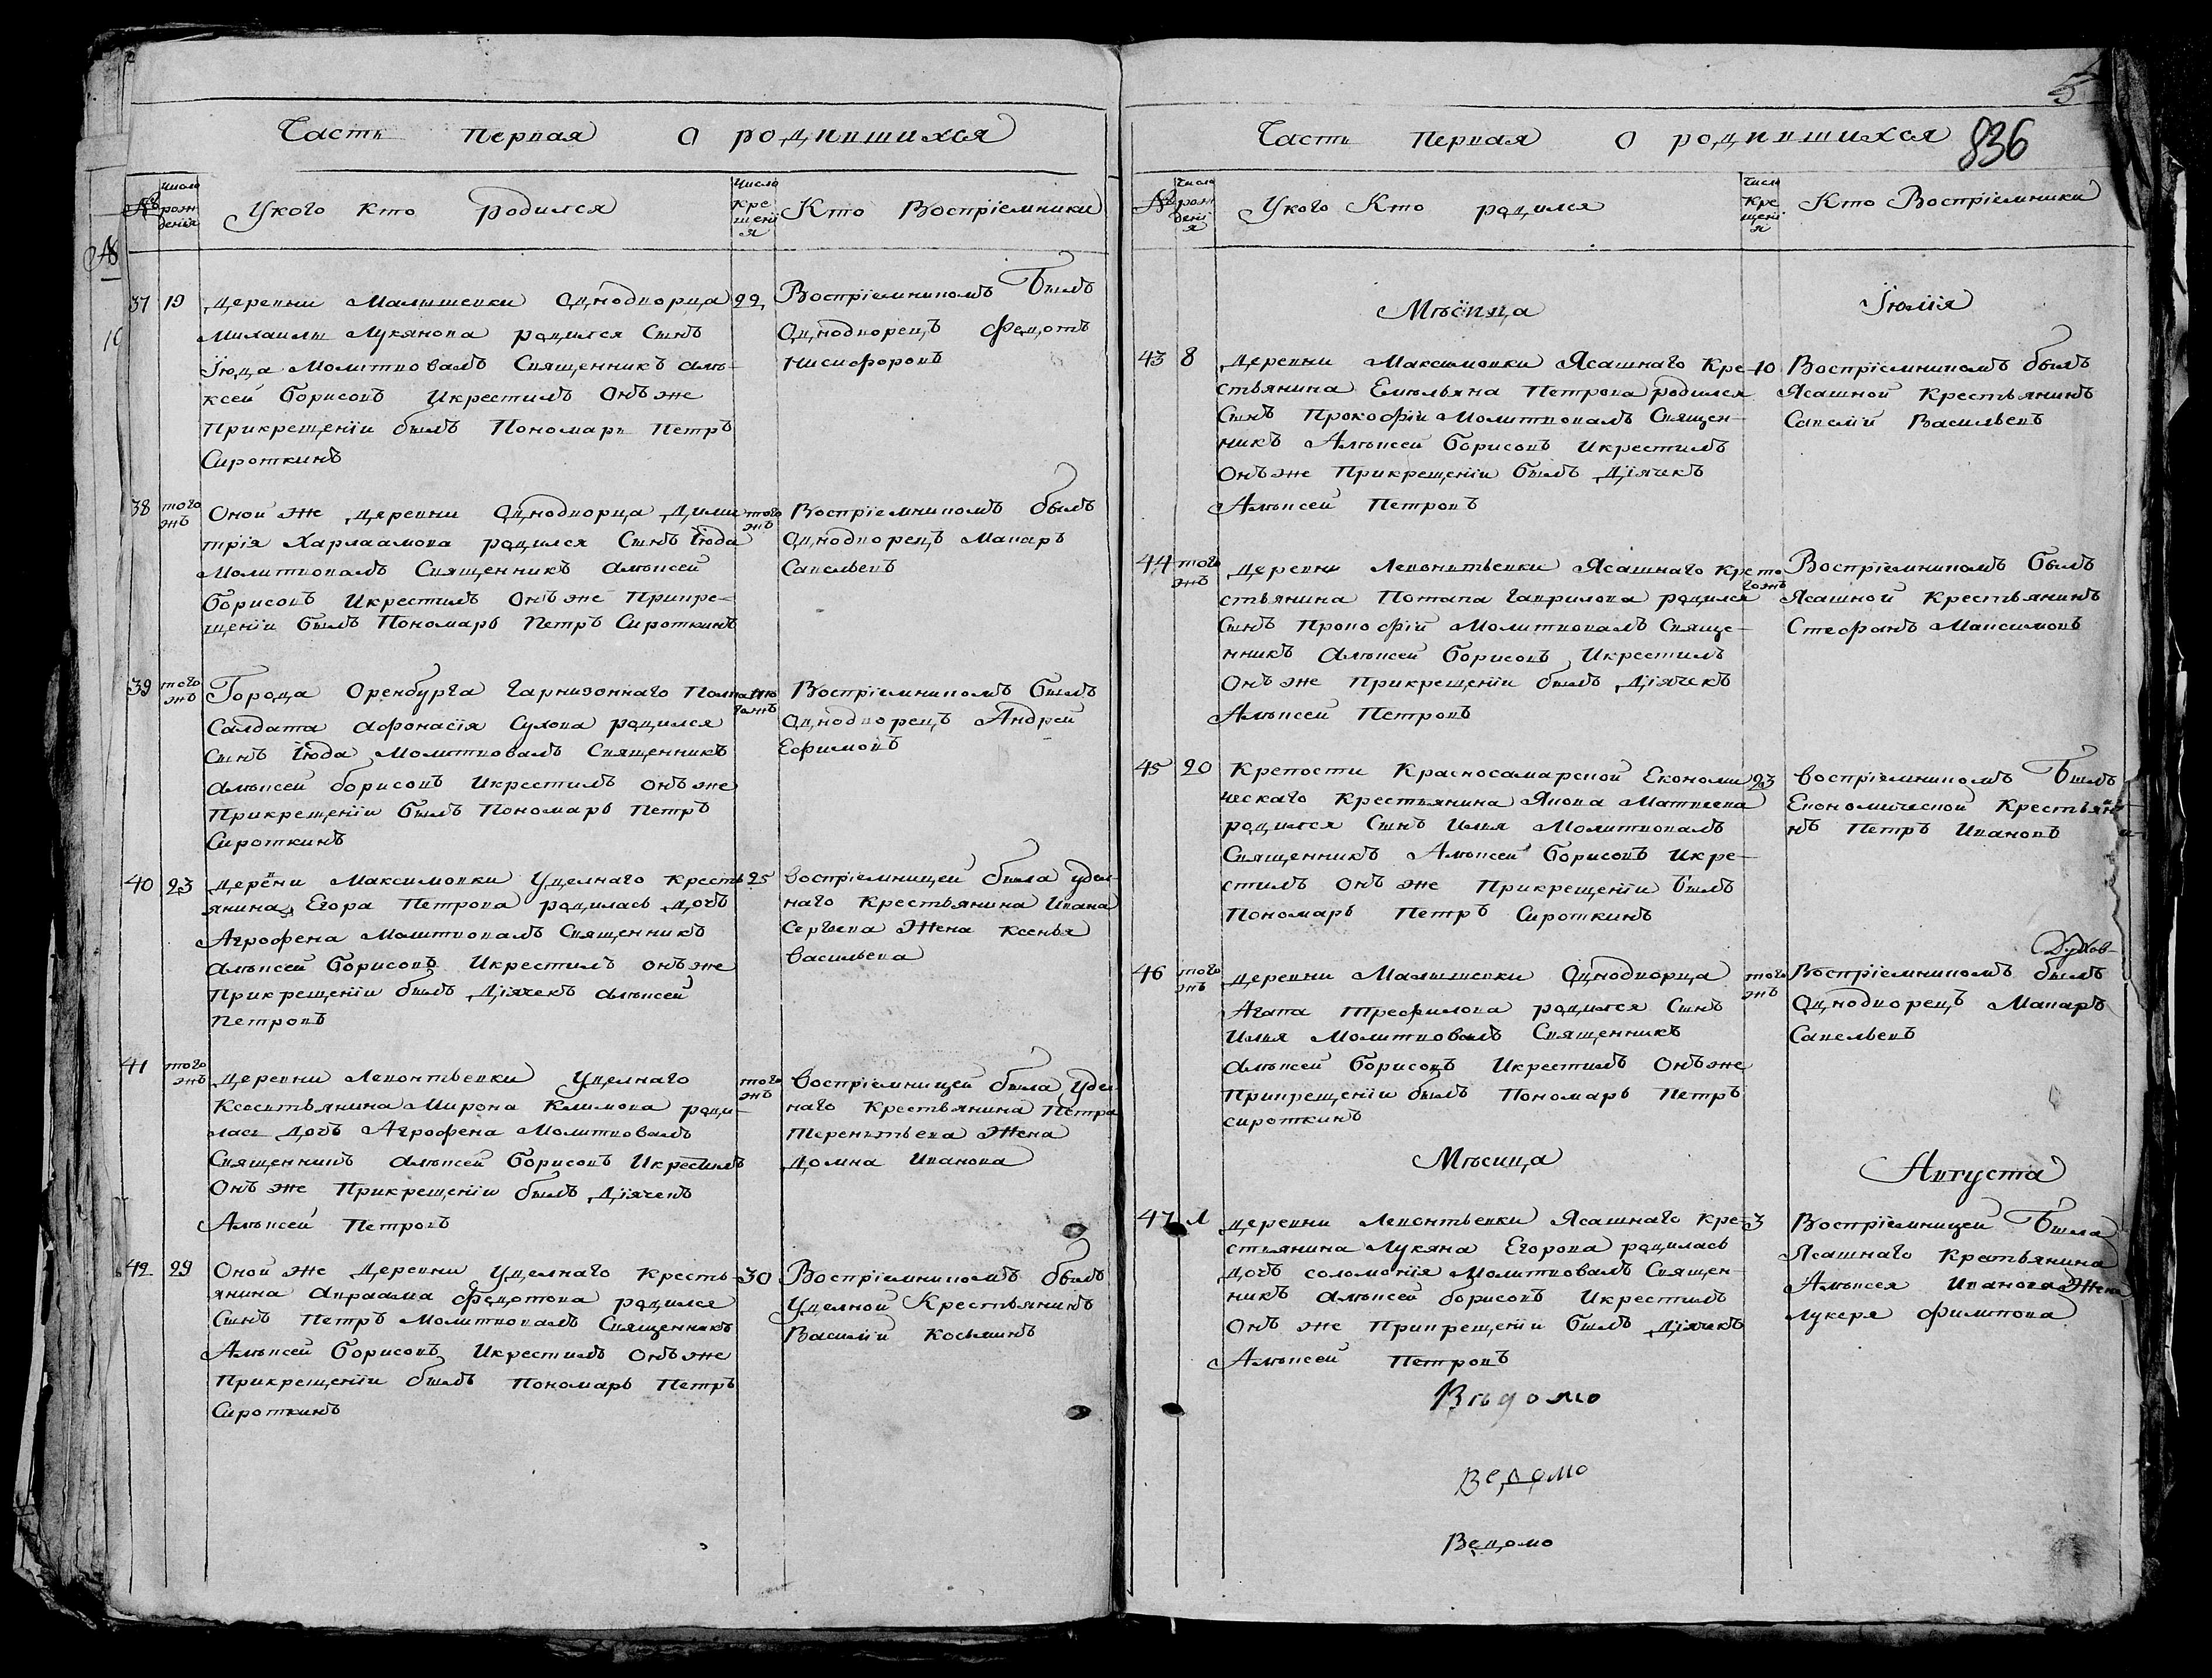 Часть первая о родившихся
№ Число рождения
Укого кто родился
Число крещения
Кто Воспрiемники
37 19 деревни Малышевки Однодворца 22
Михаилы Лукянова родился Сынъ
Їюда Молитвовалъ Священникъ але-
ксей Борисовъ Икрестилъ Онъ же
Прикрещенiи былъ Пономарь Петръ
Сироткинъ
Воспрiемникомъ былъ
Однодворецъ Федотъ
Никифоровъ
38 того жъ Оной же деревни Однодворца Дими того жъ
трiя Харлаамова родился Сынъ Iюда
Молитвовалъ Священникъ алѣксей
Борисовъ Икрестилъ Онъ же Прикре-
щенiи былъ Пономарь Петръ Сироткинъ
Воспрiемникомъ былъ
Однодворецъ Макаръ
Савельевъ
39 того жъ Города Оренбурга гарнизоннаго Полка того жъ
Салдата афонасiя Сухова родился
Сынъ Iюда Молитвовалъ Священникъ
алѣксей борисовъ Икрестилъ онъ же
Прикрещенiи былъ Пономарь Петръ
Сироткинъ
Воспрiемникомъ былъ
Однодворецъ Андрей
Ефимовъ
40 23 деревни Максимовки Уделнаго кресть 25
янина Егора Петрова родилась дочь
Агрофена Молитвовалъ Священникъ
алѣксей Борисовъ Икрестилъ онъ же
Прикрещенiи былъ Дiячекъ алѣксей
Петровъ
воспрiемницей была удел-
наго Крестьянина Ивана
Сергѣева Жена Ксенья
васильева
41 того жъ деревни Леонтьевки Уделнаго того жъ
Ксестьянина Мирона Климова роди-
лась дочь Агрофена Молитвовалъ
Священникъ алѣксей Борисовъ Икрестилъ
Онъ же Прикрещенiи былъ Дiячекъ
Алѣксей Петровъ
воспрiемницей была Удел-
наго Крестьянина Петра
Терентьева Жена
Домна Иванова
42 29 Оной же Деревни Уделнаго кресть- 30
янина авраама Федотова родился
Сынъ Петръ Молитвовалъ Священникъ
Алѣксей Борисовъ Икрестилъ Онъ же
Прикрещенiи былъ Пономарь Петръ
Сироткинъ
Воспрiемникомъ былъ
Уделной Крестьянинъ
Василiй Косьминъ
5
Часть Первая о родившихся 836
№ Число рожденiя
Укого Кто родился
Число Крещенiя
Кто Воспрiемники
Мѣсяца Їюлiя
43 8 деревни Максимовки Ясашнаго Кре- 10
стьянина Емельяна Петрова родился
Сынъ Прокофiй Молитвовалъ Священ-
никъ Алѣксей Борисовъ Икрестилъ
Онъ же Прикрещенiи былъ Дiячекъ
Алѣксей Петровъ
Воспрiемникомъ былъ
Ясашной Крестьянинъ
Савелiй Васильевъ
44 того жъ Деревни Левонтьевки Ясашнаго кре того жъ
стьянина Потапа Гаврилова родился
Сынъ Прокофiй Молитвовалъ Свяще-
нникъ Алѣксей Борисовъ Икрестилъ
Онъ же Прикрещенiи былъ Дiячекъ
Алѣксей Петровъ
Воспрiемникомъ былъ
Ясашной Крестьянинъ
Стефанъ Максимовъ
45 20 Крепости Красносамарской Економи 23
ческаго Крестьянина Якова Матвеева
родился Сынъ Илья Молитвовалъ
Священникъ Алѣксей Борисовъ Икре-
стилъ Онъ же Прикрещенiи былъ
Пономарь Петръ Сироткинъ
воспрiемникомъ былъ
Економической Крестьяни-
нъ Петръ Ивановъ
Духов-
46 того жъ деревни Малышевки Однодворца того жъ
Агапа Трефилова родился Сынъ
Илья Молитвовалъ Священникъ
Алѣксей Борисовъ Икрестилъ Онъ же
Прикрещенiи былъ Пономарь Петръ
сироткинъ
Воспрiемникомъ былъ
Однодворецъ Макаръ
Савельевъ
Мѣсяца Августа
47 1 деревни Левонтьевки Ясашнаго Кре- 3
стьянина Лукяна Егорова родилась
дочь соломонiя Молитвовалъ Священ-
никъ алѣксей борисовъ Икрестилъ
Онъ же Прикрещенiи былъ Дiячекъ
Алѣксей Петровъ
Воспрiемницей была
Ясашнаго Крестьянина
Алѣксея Иванова Жена
лукеря филипова
Вѣдомо
Ведомо
Ведомо